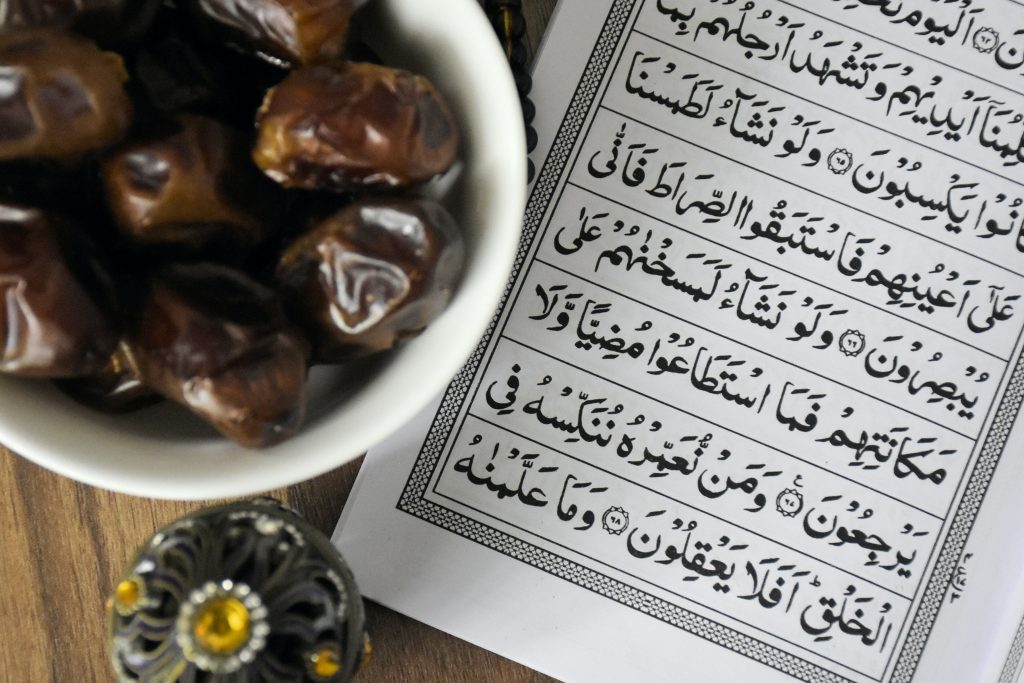 ۙ﴿٦٤﴾ اَلْيَوْمَ
اَيْدِيْهِمْ وَتَشْهَدُ اَرْجُلُهُمْ بِمَا
يَكْسِبُوْنَ ﴿٦٥﴾ وَلَوْ نَشَآءُ لَطَمَسْنَا
عَلٰۤى اَعْيُنِهِمْ فَاسْتَبَقُوا الصِّرَاطَ فَاَنّٰى
يُبْصِرُوْنَ ﴿٦٦﴾ وَلَوْ نَشَآءُ لَمَسَخْنٰهُمْ عَلٰى
مَكَانَتِهِمْ فَمَا اسْتَطَاعُوْا مُضِيًّا وَّلَا
يَرْجِعُوْنَ ﴿٦٧﴾ وَمَنْ نُّعَمِّرْهُ نُنَكِّسْهُ فِى
الْخَلْقِؕ اَفَلَا يَعْقِلُوْنَ ﴿٦٨﴾ وَمَا عَلَّمْنٰهُ